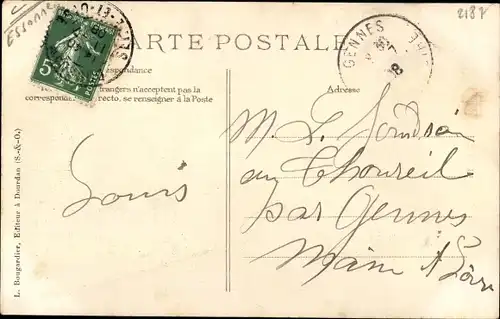 ESSONNE
2187
CARTE POSTALE
GENNES
Correspondance
étrangers n'acceptent pas la
correspondance recto, se renseigner à la Poste
Adresse
5
POSTES
M. L.
Louis
au Thoureil
par Gennes
Maine & Loire
L. Bougardier, Editeur à Dourdan (S.-&-O.)